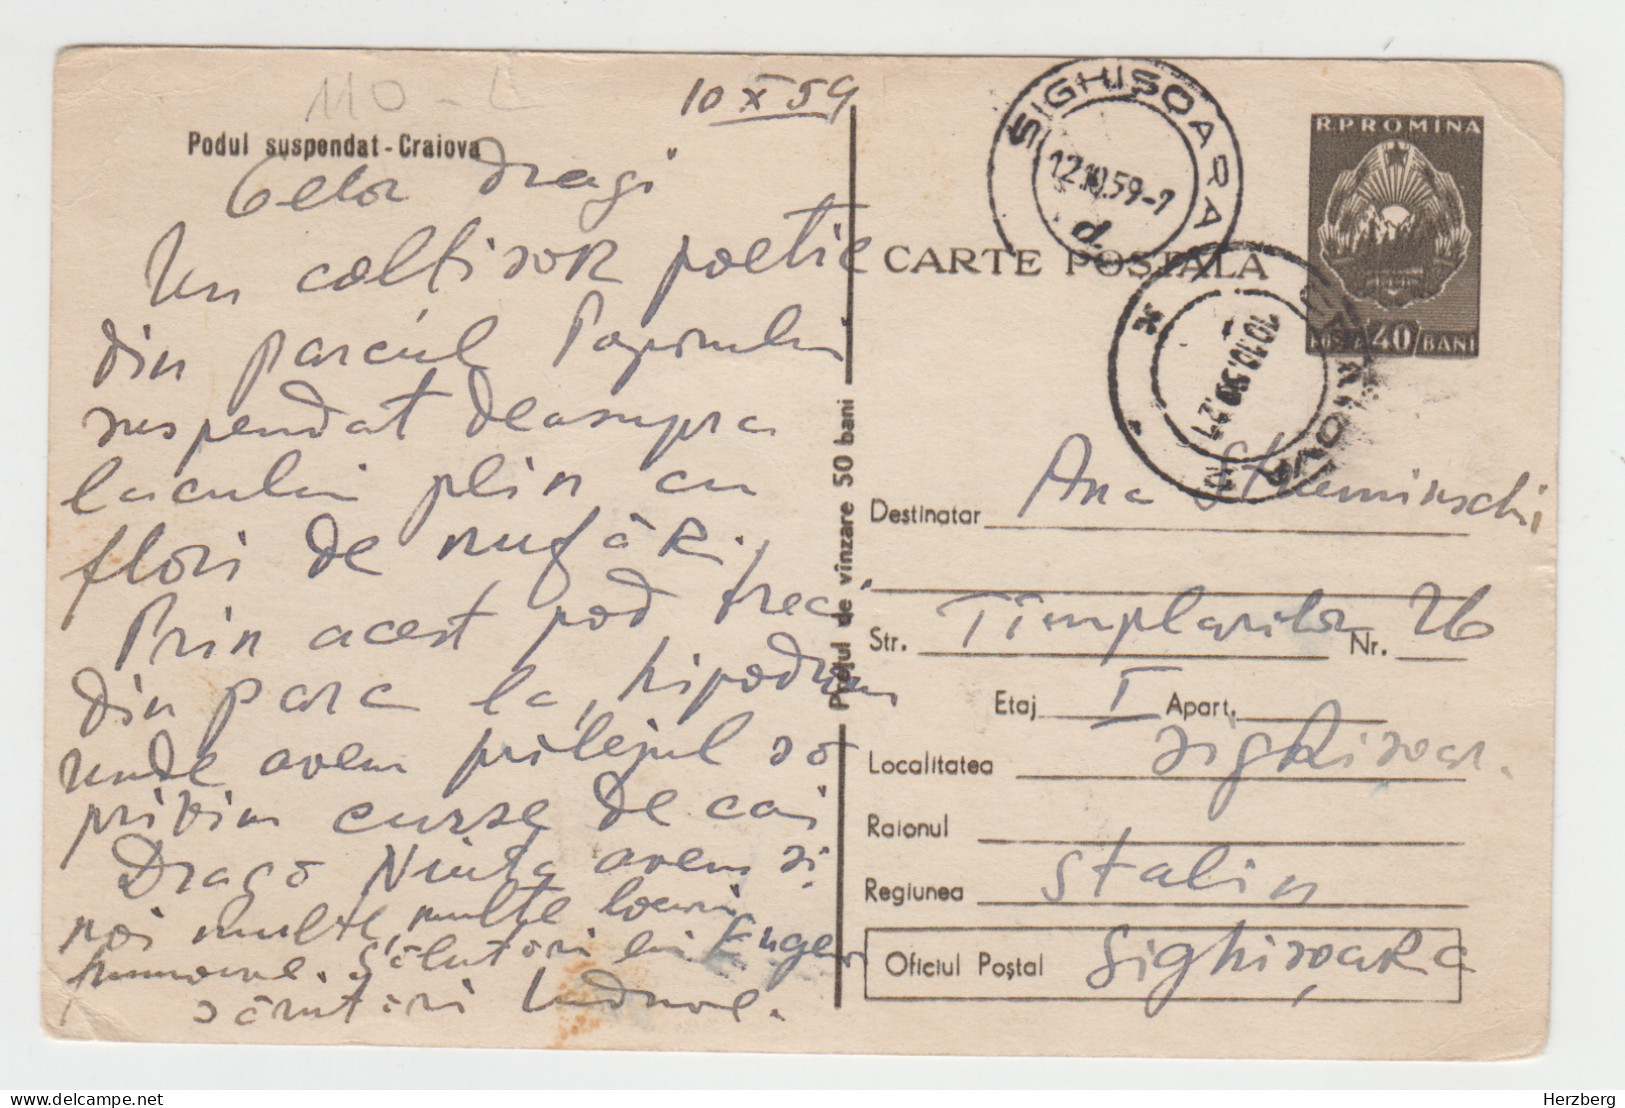 110 - L
10 X 59
Podul suspendat - Craiova
Celor dragi
Un coltisor poetic
din parcul Poporului
suspendat deasupra
lacului plin cu
flori de nufăr.
Prin acest pod treci
din parc la hipodrom
unde avem prilejul so
privim curse de cai
Dragă Nuița avem și
noi multe, multe locuri
frumoase. Sălutări lui Eugen
sărutări
Prețul de vînzare 50 bani
SIGHIȘOARA
12.10.59-7
d.
R.P.ROMINA
40 BANI
CARTE POȘTALA
CRAIOVA
10.10.59
Destinatar Ana
Str. Timplarilor Nr. 26
Etaj I Apart.
Localitatea Sighisoar.
Raionul
Regiunea Stalin
Oficiul Poștal Sighișoara
Herzberg